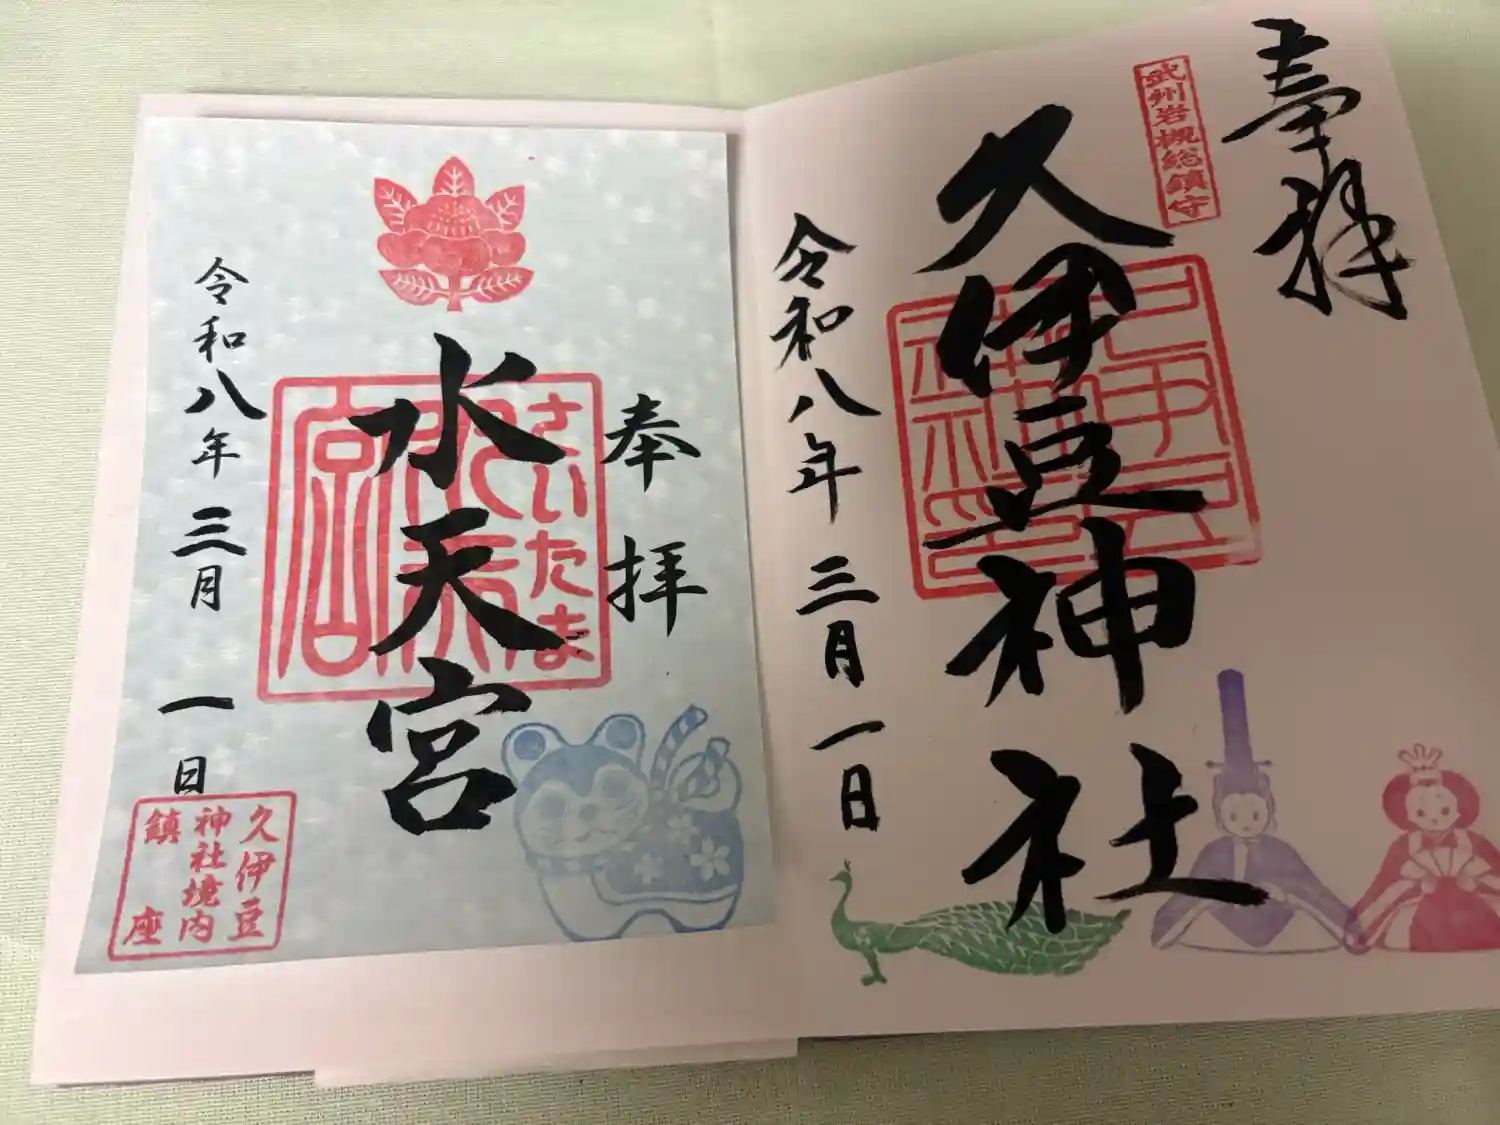 奉拝
武州岩槻総鎮守
久伊豆神社
令和八年三月一日
奉拝
さいたま
水天宮
水天宮
令和八年三月一日
久伊豆
神社境内
鎮座